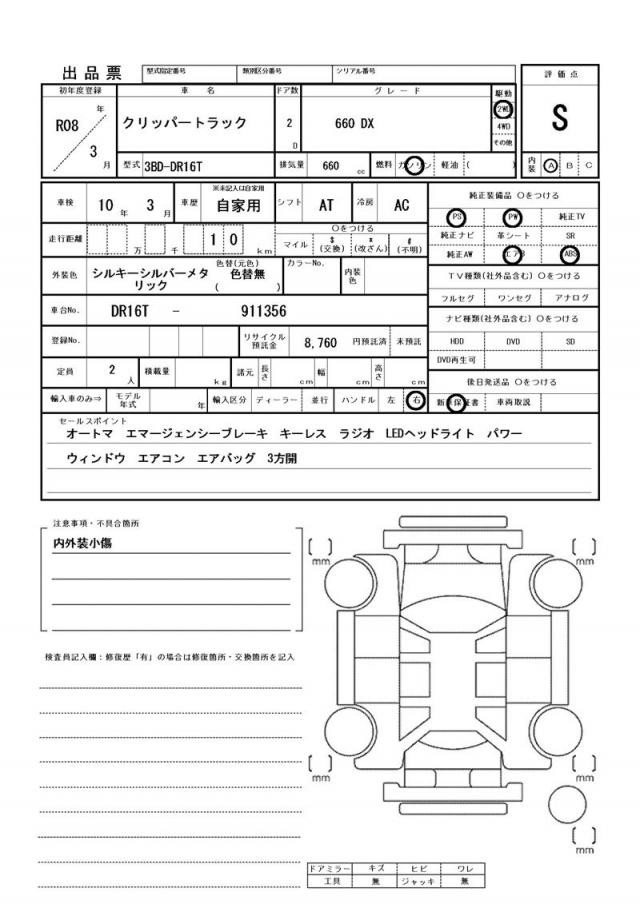 出品票 型式指定番号 類別区分番号 シリアル番号
評価点
初年度登録 車名 ドア数 グレード 駆動
R08 年 3 月
クリッパートラック 2 D 660 DX
2WD
4WD
その他
S
型式 3BD-DR16T 排気量 660 cc 燃料 ガソリン 軽油 ( )
内装 A B C
車検 10 年 3 月 車歴 ※未記入は自家用 自家用 シフト AT 冷房 AC
純正装備品 Oをつける
PS PW 純正TV
純正ナビ 革シート SR
純正AW エアB ABS
走行距離 万 千 1 0 km
Oをつける
マイル $(交換) x(改ざん) #(不明)
外装色 シルキーシルバーメタリック 色替(元色) 色替無 ( ) カラーNo. 内装色
TV種類(社外品含む) Oをつける
フルセグ ワンセグ アナログ
車台No. DR16T - 911356
ナビ種類(社外品含む) Oをつける
HDD DVD SD
DVD再生可
登録No. リサイクル預託金 8,760 円預託済 未預託
定員 2 人 積載量 kg 諸元 長さ cm 幅 cm 高さ cm
後日発送品 Oをつける
新車保証書 車両取説
輸入車のみ⇒ モデル年式 年 輸入区分 ディーラー 並行 ハンドル 左 右
セールスポイント
オートマ エマージェンシーブレーキ キーレス ラジオ LEDヘッドライト パワー
ウィンドウ エアコン エアバッグ 3方開
注意事項・不具合箇所
内外装小傷
検査員記入欄：修復歴「有」の場合は修復箇所・交換箇所を記入
mm
mm
mm
mm
mm
ドアミラー キズ ヒビ ワレ
工具 無 ジャッキ 無